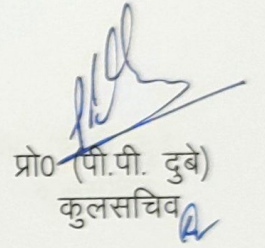 प्रो० (पी.पी. दुबे)
कुलसचिव